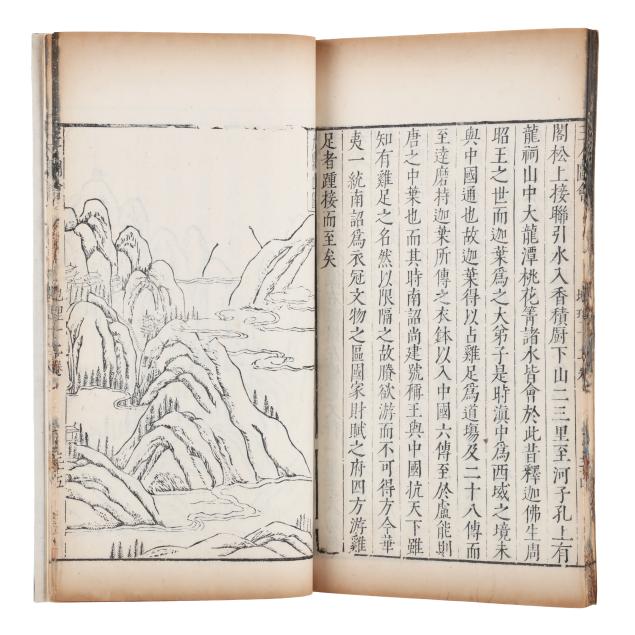 閣松上接聯引水入香積厨下山二三里至河子孔上有
龍祠山中大龍潭桃花箐諸水皆會於此昔釋迦佛生周
昭王之世而迦葉爲之大弟子是時滇中爲西域之境未
與中國通也故迦葉得以占雞足爲道塲及二十八傳而
至達磨持迦葉所傳之衣鉢以入中國六傳至於盧能則
唐之中葉也而其時南詔尚建號稱王與中國抗天下雖
知有雞足之名然以限隔之故勝欲游而不可得方今華
夷一統南詔爲衣冠文物之區國家財賦之府四方游雞
足者踵接而至矣
地理